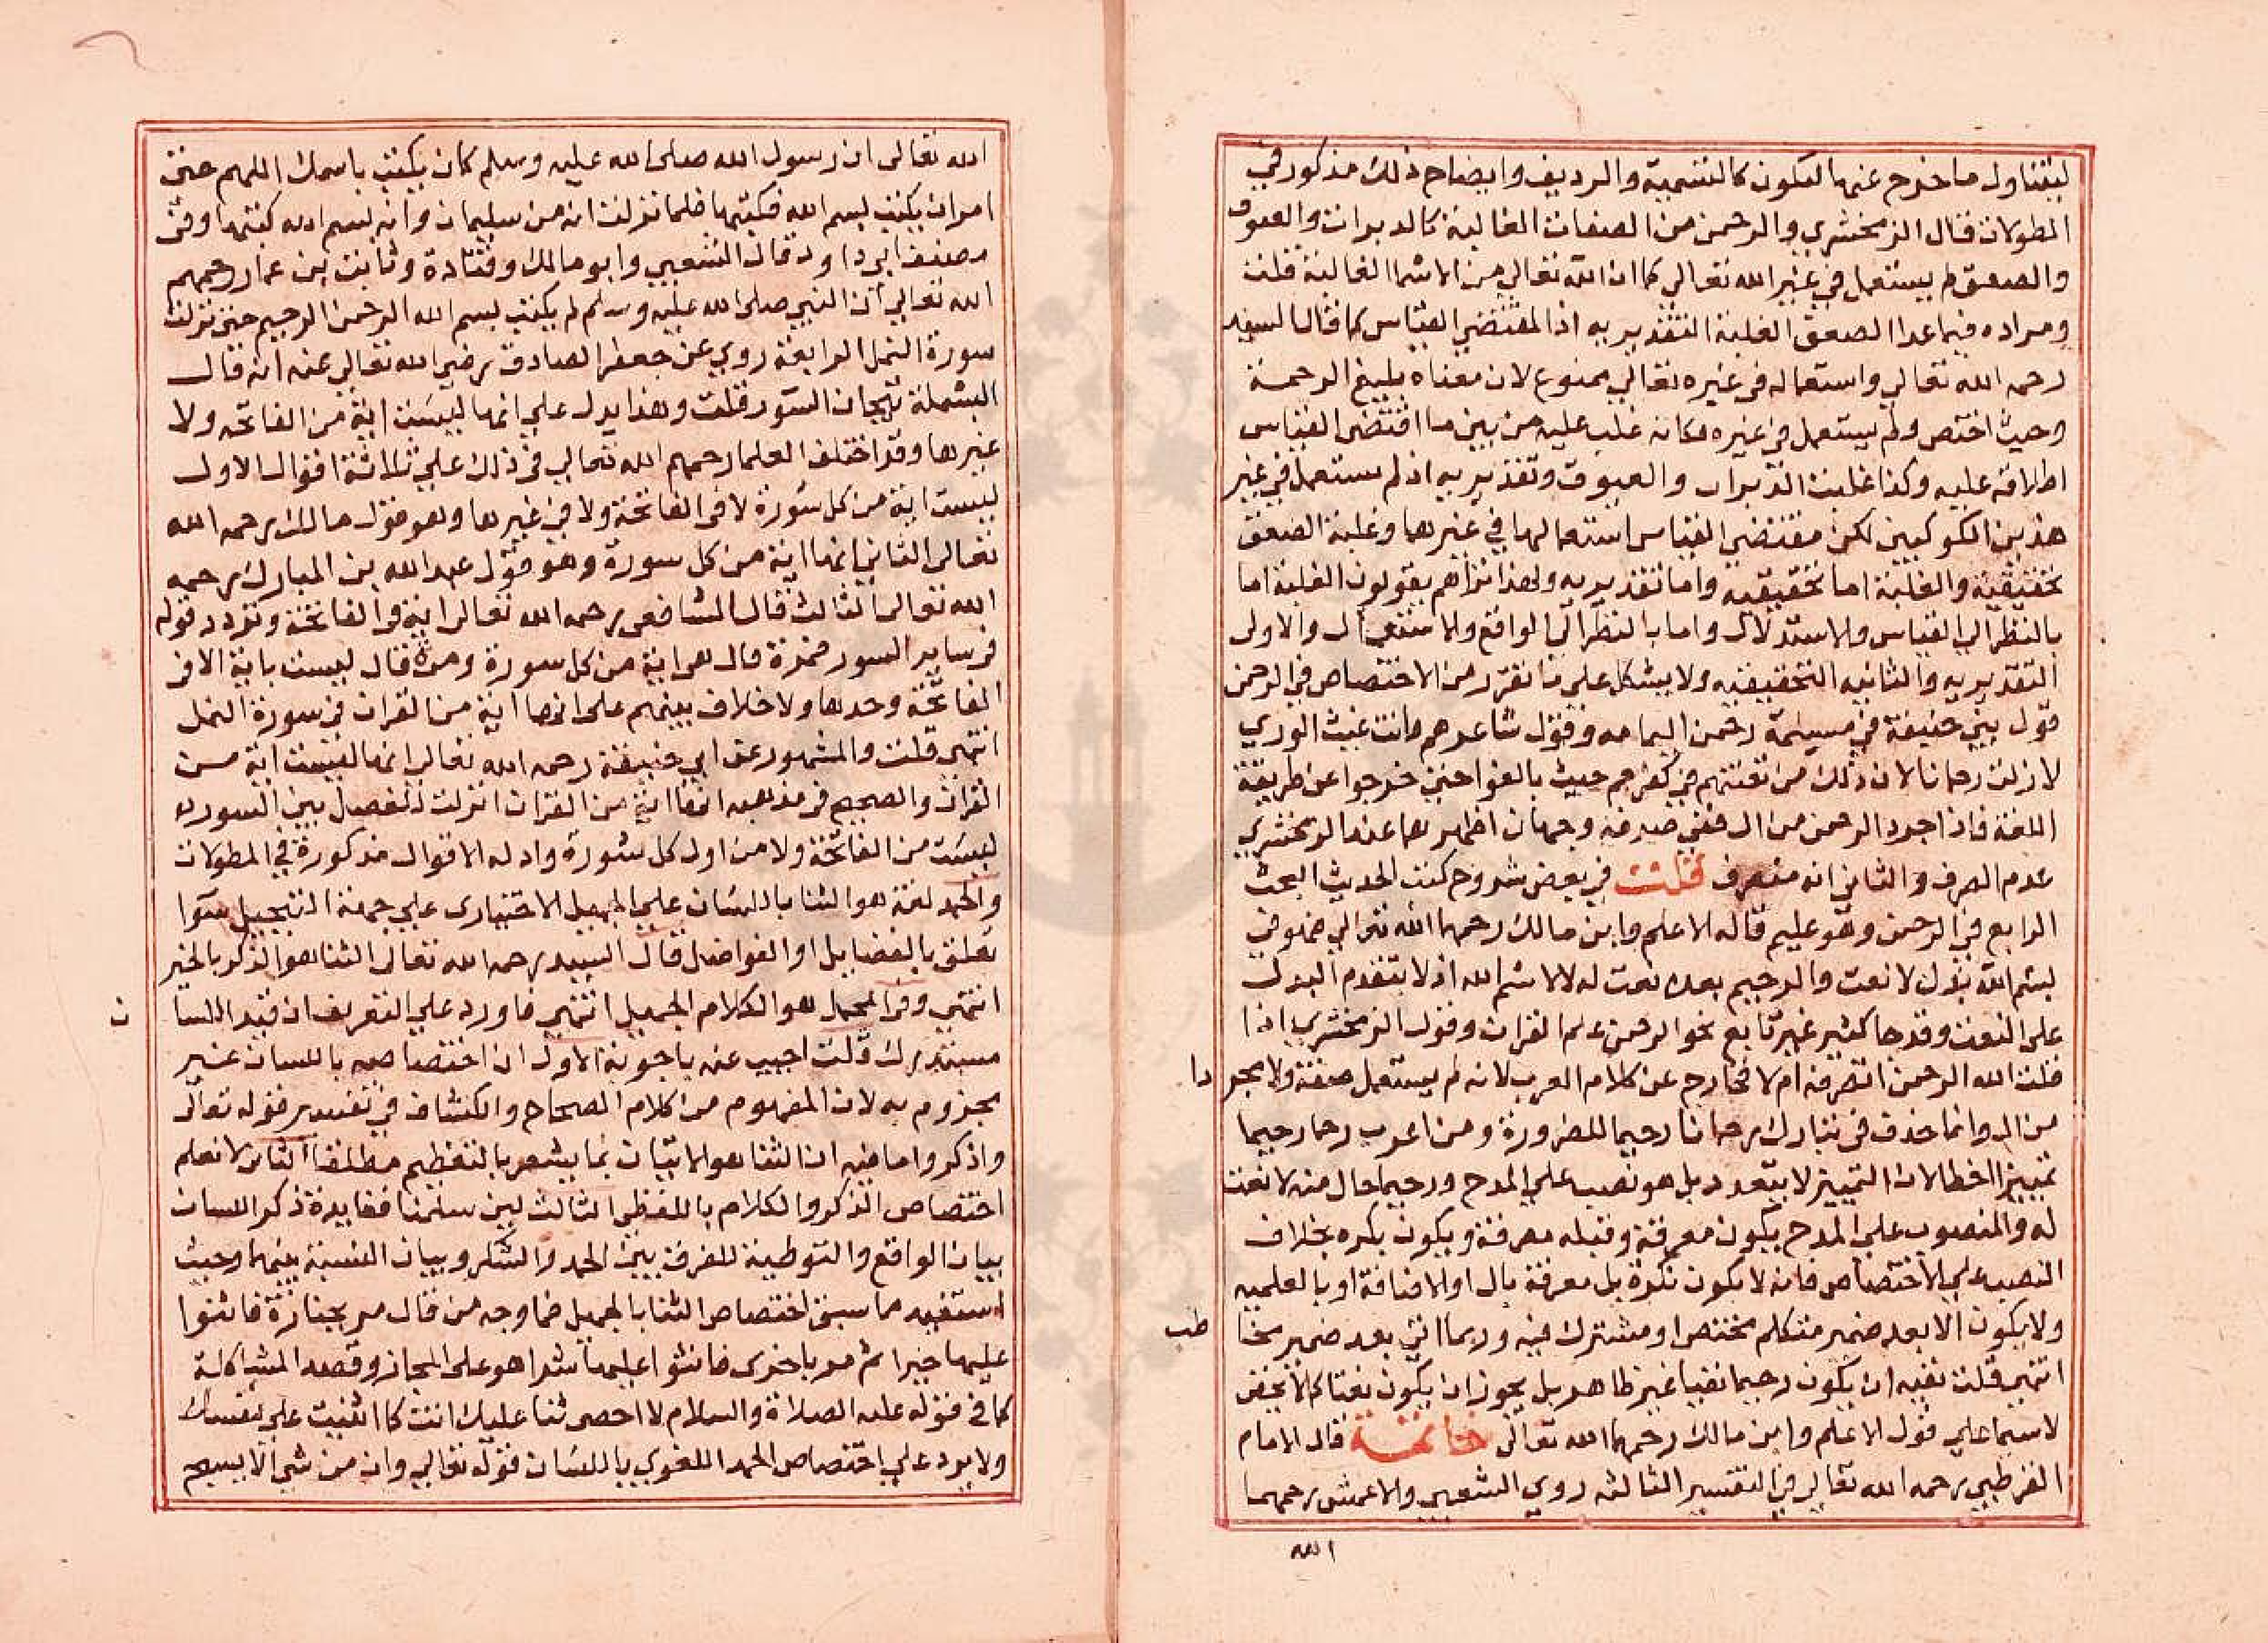 ليتناول ما خرج عنهما لتكون كالتتمية والرديف وايضاح ذلك مذكور في
المطولات قال الزمخشري والرحمن من الصفات الغالبة كالدبران والعيوق
والصعق لم يستعمل في غير الله تعالى كما ان الله تعالى من الاسما الغالبة قلت
ومراده فيما عدا الصعق الغلبة التقديريه اذ المقتضى القياس كما قال السيد
رحمه الله تعالى واستعماله في غيره تعالى ممنوع لان معناه بليغ الرحمة
وحيث اختص ولم يستعمل في غيره فكانه غلب عليه من بين ما اقتضى القياس
اطلاقه عليه وكذا غلبة الدبران والعيوق وتقديريه اذ لم يستعمل في غير
هذين الكوكبين لكن مقتضى القياس استعمالهما في غيرهما وغلبة الصعق
تحقيقية والغلبة اما تحقيقيه واما تقديريه ولهذا تراهم يقولون الغلبة اما
بالنظر الى القياس والاستدلال واما بالنظر الى الواقع والاستعمال والاولى
التقديريه والثانيه التحقيقيه ولا يشكل على ما تقرر من الاختصاص في الرحمن
قول بني حنيفة في مسيلمة رحمن اليمامه وقول شاعرهم وانت غيث الورى
لا زلت رحمانا لان ذلك من تعنتهم في كفرهم حيث بالغوا حتى خرجوا عن طريقة
اللغة فاذا جرد الرحمن من ال ففي صرفه وجهان اظهرهما عند الزمخشري
عدم الصرف والثاني انه منصرف قلت في بعض شروح كتب الحديث البحث
الرابع في الرحمن وهو عليم قاله الاعلم وابن مالك رحمهما الله تعالى فهو في
بسم الله بدل لا نعت والرحيم بعده نعت له لا لاسم الله اذ لا يتقدم البدل
على النعت وقد جا كثير غير تابع نحو الرحمن علم القران وقول الزمخشري اذا
قلت الله الرحمن اتصرفه ام لا فخارج عن كلام العرب لانه لم يستعمل صفة ولا مجردا
من ال وانما حذف في تبارك رحمانا رحيما للضرورة ومن اعرب رحما رحيما
تمييزا اخطا لان التمييز لا يتعدد بل هو نصب على المدح ورحيما حال منه لا نعت
له والمنصوب على المدح يكون معرفة وقبله معرفة ويكون نكره بخلاف
النصب على الاختصاص فانه لا يكون نكرة بل معرفة بال او الاضافة او بالعلميه
ولا يكون الا بعد ضمير متكلم مختص او مشترك فيه وربما اتى بعد ضمير مخاطب
انتهى قلت نفيه ان يكون رحيما نعتا غير ظاهر بل يجوز ان يكون نعتا كما لا يخفى
لا سيما على قول الاعلم وابن مالك رحمهما الله تعالى خاتمة قال الامام
القرطبي رحمه الله تعالى في التفسير الثالثه روى الشعبي والاعمش رحمهما
الله
الله تعالى ان رسول الله صلى الله عليه وسلم كان يكتب باسمك اللهم حتى
امر ان يكتب بسم الله فكتبها فلما نزلت انه من سليمان وانه بسم الله كتبها وفى
مصنف ابى داود قال الشعبي وابو مالك وقتادة وثابت بن عمار رحمهم
الله تعالى ان النبي صلى الله عليه وسلم لم يكتب بسم الله الرحمن الرحيم حتى نزلت
سورة النمل الرابعة روي عن جعفر الصادق رضي الله تعالى عنه انه قال
البسملة تيجان السور قلت وهذا يدل على انها ليست اية من الفاتحه ولا
غيرها وقد اختلف العلما رحمهم الله تعالى في ذلك على ثلاثة اقوال الاول
ليست اية من كل سورة لا في الفاتحة ولا في غيرها وهو قول مالك رحمه الله
تعالى الثاني انها اية من كل سورة وهو قول عبد الله بن المبارك رحمه
الله تعالى الثالث قال الشافعى رحمه الله تعالى اية في الفاتحة وتردد قوله
في ساير السور فمرة قال هي اية من كل سورة ومرة قال ليست باية الا في
الفاتحة وحدها ولا خلاف بينهم على انها اية من القران في سورة النمل
انتهى قلت والمشهور عن ابي حنيفة رحمه الله تعالى انها ليست اية من
القران والصحيح في مذهبه انها اية من القران انزلت للفصل بين السوره
ليست من الفاتحة ولا من اول كل سورة وادله الاقوال مذكورة في المطولات
والحمد لغة هو الثنا باللسان على الجميل الاختيارى على جهة التبجيل سوا
تعلق بالفضايل او الفواضل قال السيد رحمه الله تعالى الثنا هو الذكر بالخير
انتهى وفي المجمل هو الكلام الجميل انتهى فاورد على التعريف ان قيد اللسان
مستدرك قلت اجيب عنه باجوبة الاول ان اختصاصه باللسان غير
مجزوم به لان المفهوم من كلام الصحاح والكشاف في تفسير قوله تعالى
واذكروا ما فيه ان الثنا هو الاتيان بما يشعر بالتعظيم مطلقا الثانى لا نعلم
اختصاص الذكر والكلام باللفظي الثالث لين سلمنا ففايدة ذكر اللسان
بيان الواقع والتوطية للفرق بين الحمد والشكر وبيان النسبة بينهما وحيث
استفيد مما سبق اختصاص الثنا بالجميل فما وجه من قال مر بجنازة فاثنوا
عليها خيرا ثم مر باخرى فاثنوا عليها شرا هو على المجاز وقصد المشاكلة
كما في قوله عليه الصلاة والسلام لا احصى ثنا عليك انت كما اثنيت على نفسك
ولا يرد على اختصاص الحمد اللغوي باللسان قوله تعالى وان من شي الا يسبح